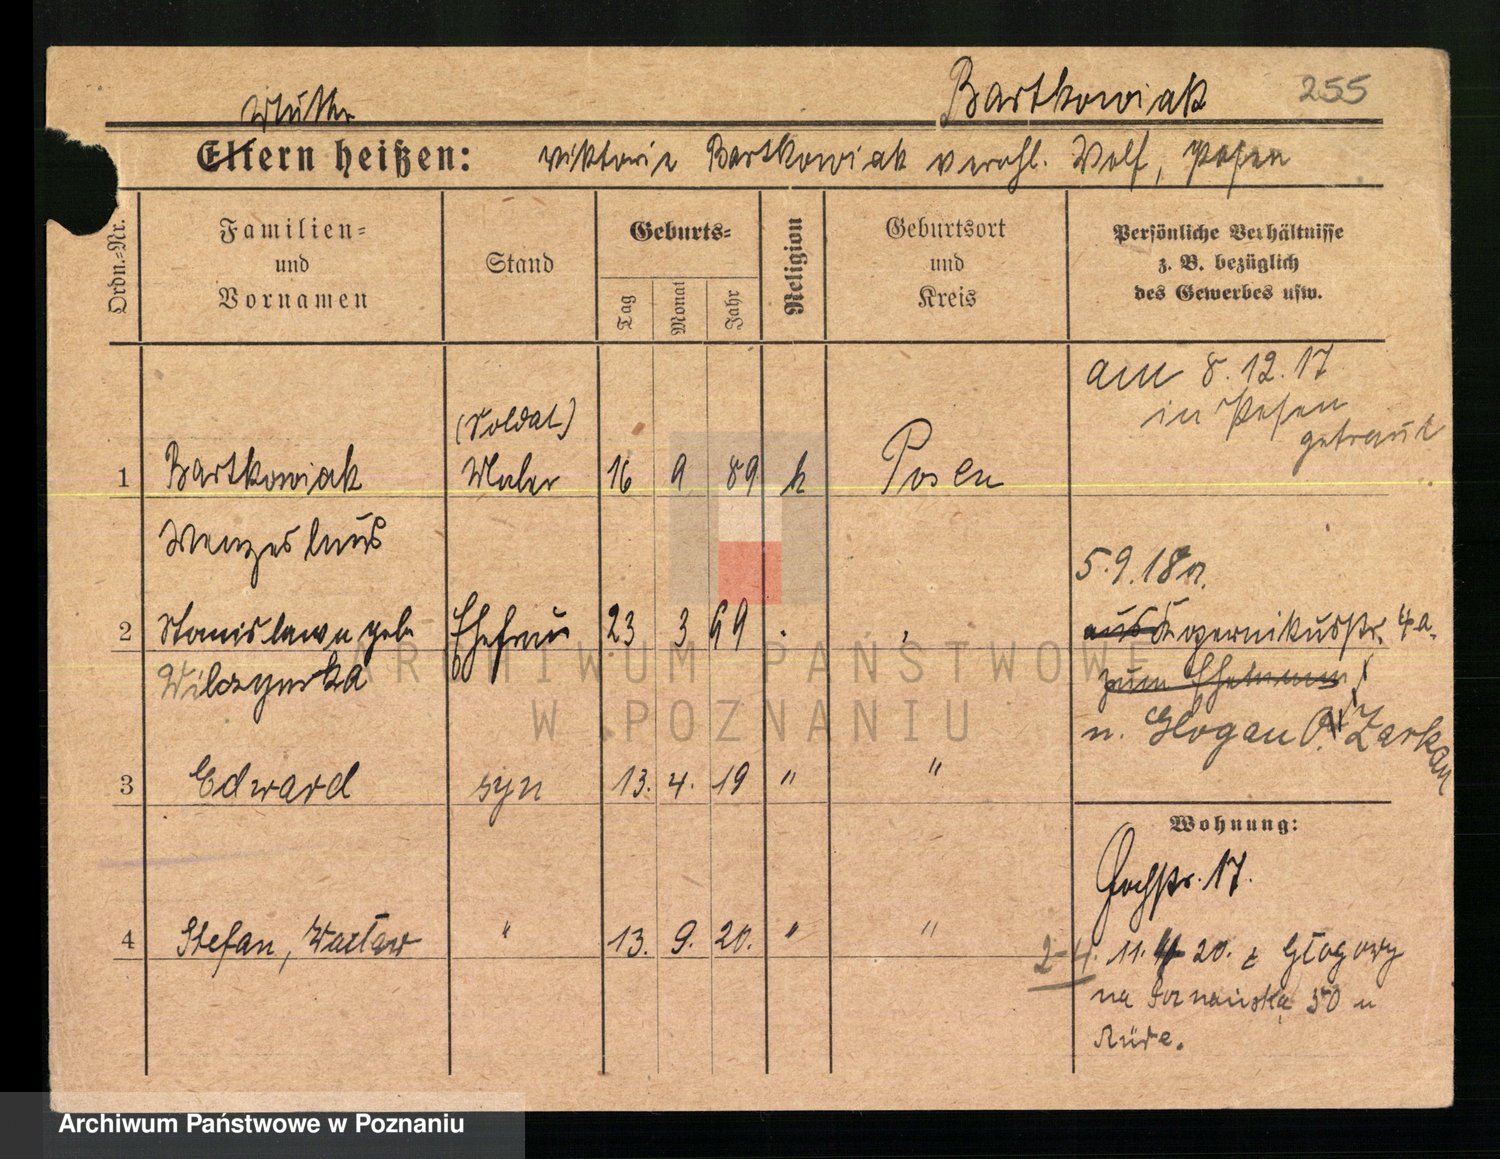 Bartkowiak 255
Mutter
Eltern heißen: Viktorie Bartkowiak verehl. Wolf, Posen
Ordn.-Nr.
Familien-
und
Vornamen
Stand
Geburts-
Tag
Monat
Jahr
Religion
Geburtsort
und
Kreis
Persönliche Verhältnisse
z. B. bezüglich
des Gewerbes usw.
am 8.12.17
in Posen
getraut
(Soldat)
1 Bartkowiak Maler 16 9 89 k Posen
Wenzeslaus
5.9.18 n.
2 Stanislawa geb. Ehefrau 23 3 99
aus Kopernikusstr. 4a.
Wilczynska
zum Ehemann
n. Glogau Zarkau
3 Edward syn 13. 4. 19 " "
Wohnung:
Hochstr. 17.
4 Stefan, Wacław " 13. 9. 20. " "
2-4. 11. 20. z Głogowy
na Poznańska 50 u
ARCHIWUM PAŃSTWOWE
W POZNANIU
Archiwum Państwowe w Poznaniu